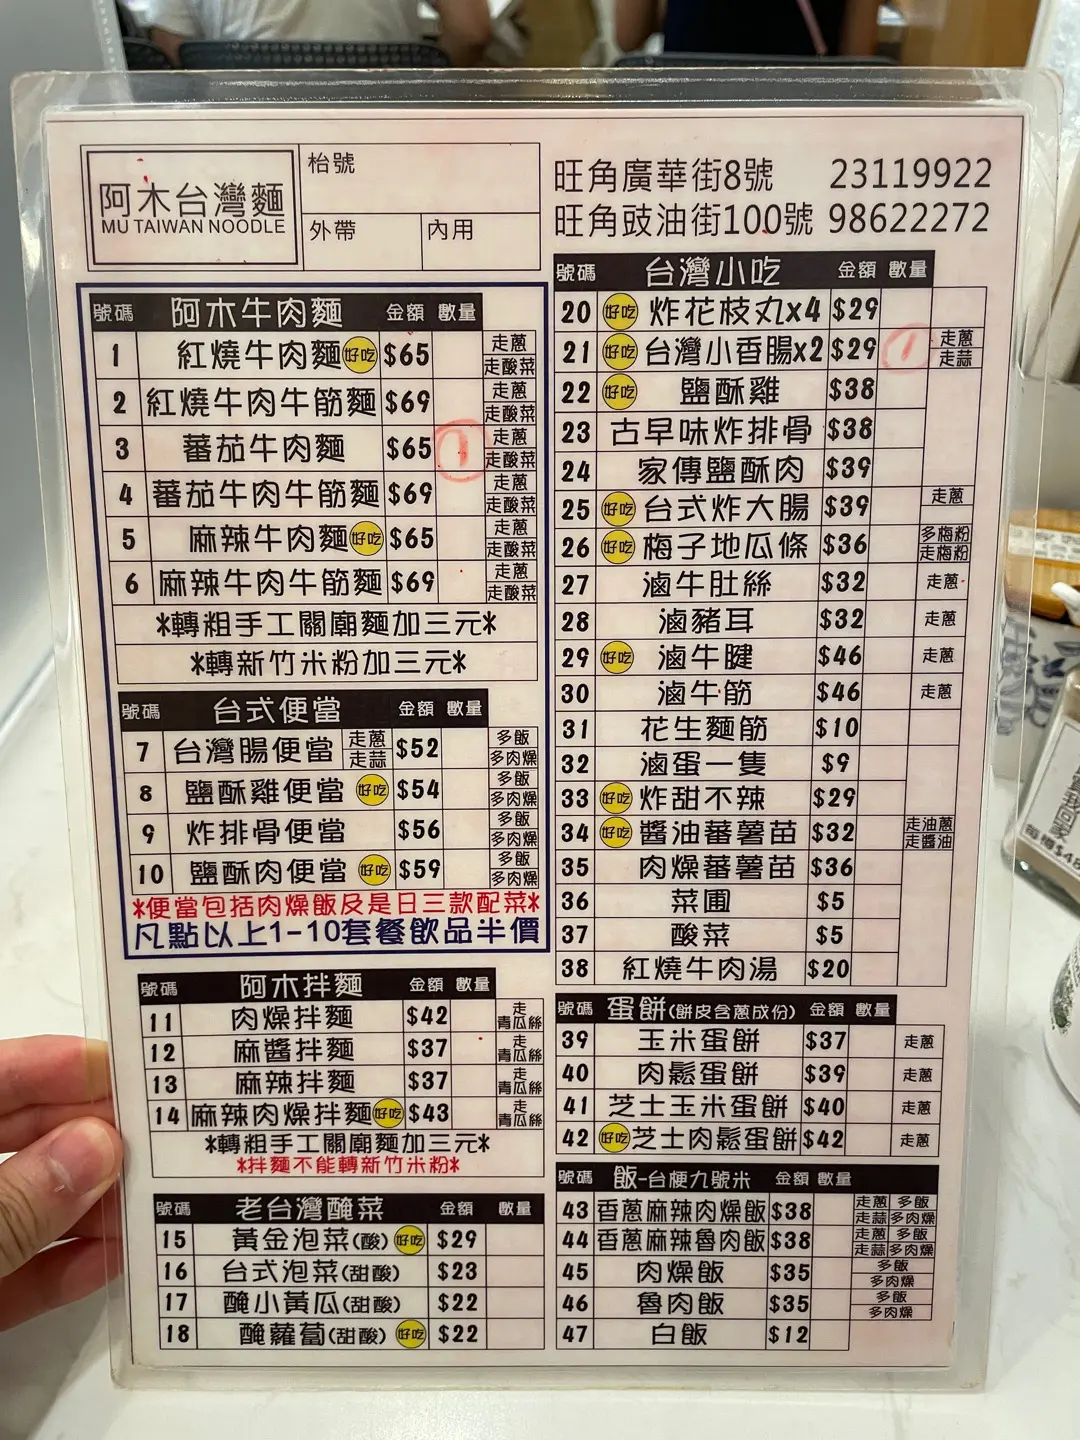 阿木台灣麵
MU TAIWAN NOODLE
枱號
外帶 內用
旺角廣華街8號 23119922
旺角豉油街100號 98622272
號碼 阿木牛肉麵 金額 數量
1 紅燒牛肉麵 好吃 $65 走蔥 走酸菜
2 紅燒牛肉牛筋麵 $69 走蔥 走酸菜
3 蕃茄牛肉麵 $65 1 走蔥 走酸菜
4 蕃茄牛肉牛筋麵 $69 走蔥 走酸菜
5 麻辣牛肉麵 好吃 $65 走蔥 走酸菜
6 麻辣牛肉牛筋麵 $69 走蔥 走酸菜
*轉粗手工關廟麵加三元*
*轉新竹米粉加三元*
號碼 台式便當 金額 數量
7 台灣腸便當 走蔥 走蒜 $52 多飯 多肉燥
8 鹽酥雞便當 好吃 $54 多飯 多肉燥
9 炸排骨便當 $56 多飯 多肉燥
10 鹽酥肉便當 好吃 $59 多飯 多肉燥
*便當包括肉燥飯及是日三款配菜*
凡點以上1-10套餐飲品半價
號碼 阿木拌麵 金額 數量
11 肉燥拌麵 $42 走青瓜絲
12 麻醬拌麵 $37 走青瓜絲
13 麻辣拌麵 $37 走青瓜絲
14 麻辣肉燥拌麵 好吃 $43 走青瓜絲
*轉粗手工關廟麵加三元*
*拌麵不能轉新竹米粉*
號碼 老台灣醃菜 金額 數量
15 黃金泡菜(酸) 好吃 $29
16 台式泡菜(甜酸) $23
17 醃小黃瓜(甜酸) $22
18 醃蘿蔔(甜酸) 好吃 $22
號碼 台灣小吃 金額 數量
20 好吃 炸花枝丸x4 $29
21 好吃 台灣小香腸x2 $29 1 走蔥 走蒜
22 好吃 鹽酥雞 $38
23 古早味炸排骨 $38
24 家傳鹽酥肉 $39
25 好吃 台式炸大腸 $39 走蔥
26 好吃 梅子地瓜條 $36 多梅粉 走梅粉
27 滷牛肚絲 $32 走蔥
28 滷豬耳 $32 走蔥
29 好吃 滷牛腱 $46 走蔥
30 滷牛筋 $46 走蔥
31 花生麵筋 $10
32 滷蛋一隻 $9
33 好吃 炸甜不辣 $29
34 好吃 醬油蕃薯苗 $32 走油蔥 走醬油
35 肉燥蕃薯苗 $36
36 菜圃 $5
37 酸菜 $5
38 紅燒牛肉湯 $20
號碼 蛋餅(餅皮含蔥成份) 金額 數量
39 玉米蛋餅 $37 走蔥
40 肉鬆蛋餅 $39 走蔥
41 芝士玉米蛋餅 $40 走蔥
42 好吃 芝士肉鬆蛋餅 $42 走蔥
號碼 飯-台梗九號米 金額 數量
43 香蔥麻辣肉燥飯 $38 走蔥 多飯 走蒜 多肉燥
44 香蔥麻辣魯肉飯 $38 走蔥 多飯 走蒜 多肉燥
45 肉燥飯 $35 多飯 多肉燥
46 魯肉飯 $35 多飯 多肉燥
47 白飯 $12